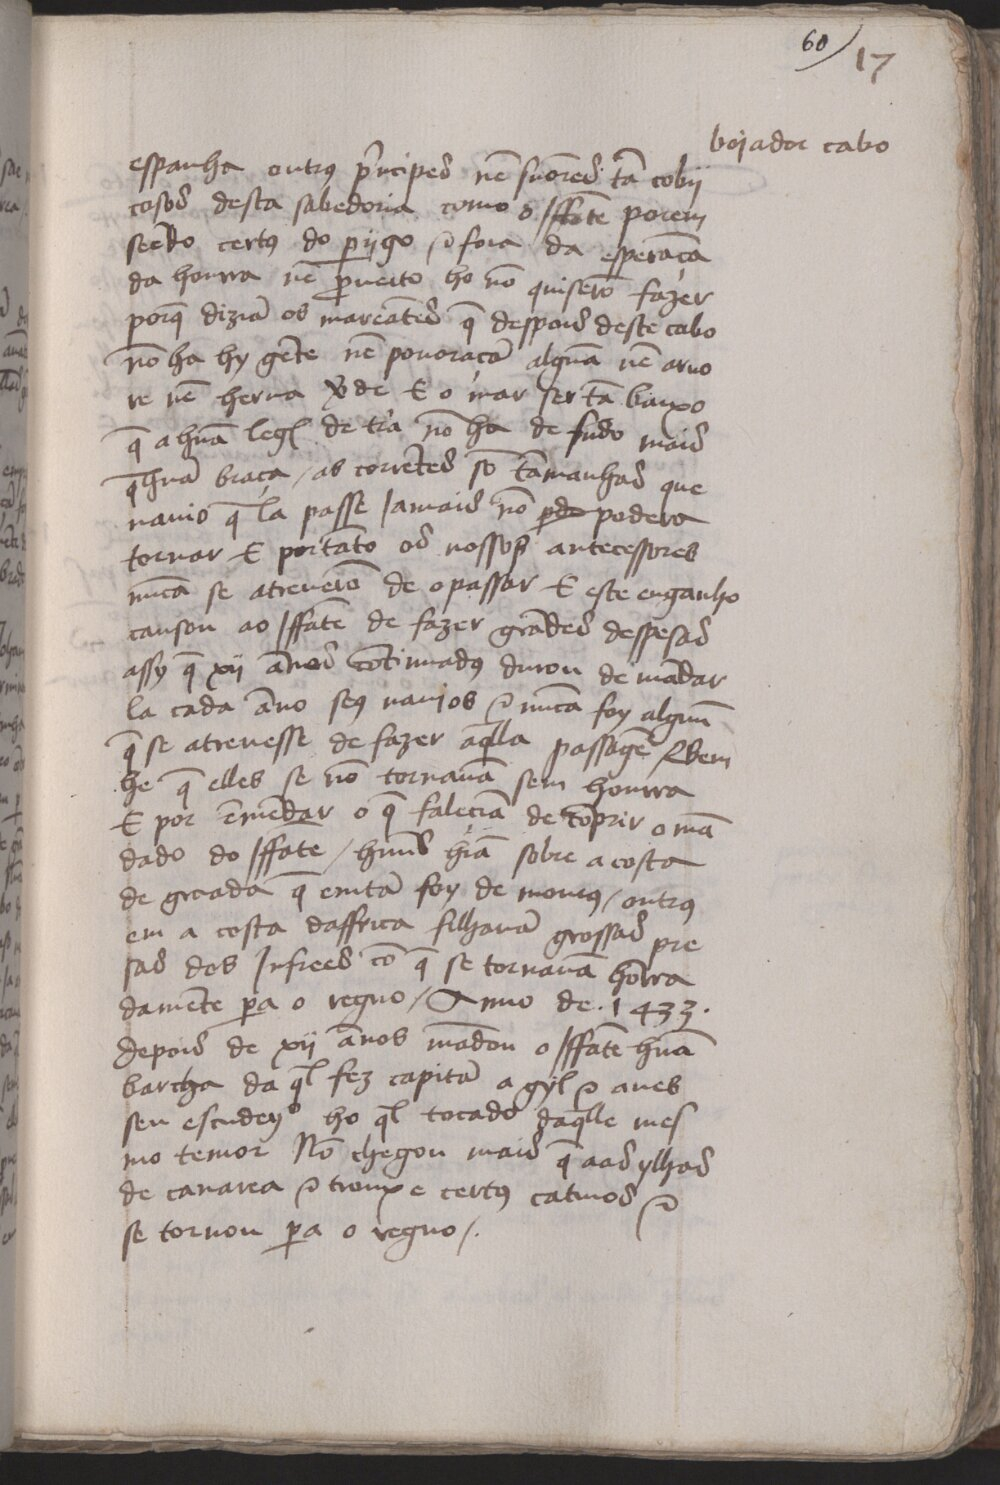 60 17
bojador cabo
espanha outros p̃ncipes nẽ snõres tã cobij
cosos desta sabedoria como o Iffãte porem
seẽdo certos do perijgo & fora da esperãça
da honrra nẽ proueito ho nõ quiserõ fazer
porq̃ diziã os mareãtes q̃ despois deste cabo
nõ ha hy gẽte nẽ pouoraçã algũa nẽ aruo
re nẽ herua v̾de E o mar ser tã baixo
q̃ a hũa legl̃ de tr̃a nõ ha de fũdo mais
q̃ hũa braça / as corrẽtes sõ tãmanhas que
nauio q̃ la passe Iamais nõ podera
tornar E portãto os nossos antecessores
nũca se atreuerõ de o passar E este enganho
causou ao Iffãte de fazer grãdes despesas
assy q̃ xij ãnos cõtinuados durou de mãdar
la cada ãno seus nauios & nũca foy alguũ
q̃ se atreuesse de fazer aq̃lla passagẽ / Bem
he q̃ elles se nõ tornauã sem honrra
E por ẽmẽdar o q̃ faleciã de cõprir o mã
dado do Iffãte / hũus hiã sobre a costa
de graada q̃ entã foy de mouros / outros
em a costa daffrica filhauã grossas pre
sas dos Infiees cõ q̃ se tornauã hõrra
damẽte pera o regno / Anno de . 1433 .
Depois de xij ãnos mãdou o Iffãte hũa
barcha da ql̃ fez capitã a gyl & anes
seu escudeyrº ho ql̃ tocado daq̃lle mes
mo temor Nõ chegou mais q̃ aas ylhas
de canarea & trouxe certos catiuos &
se tornou pera o regno /.